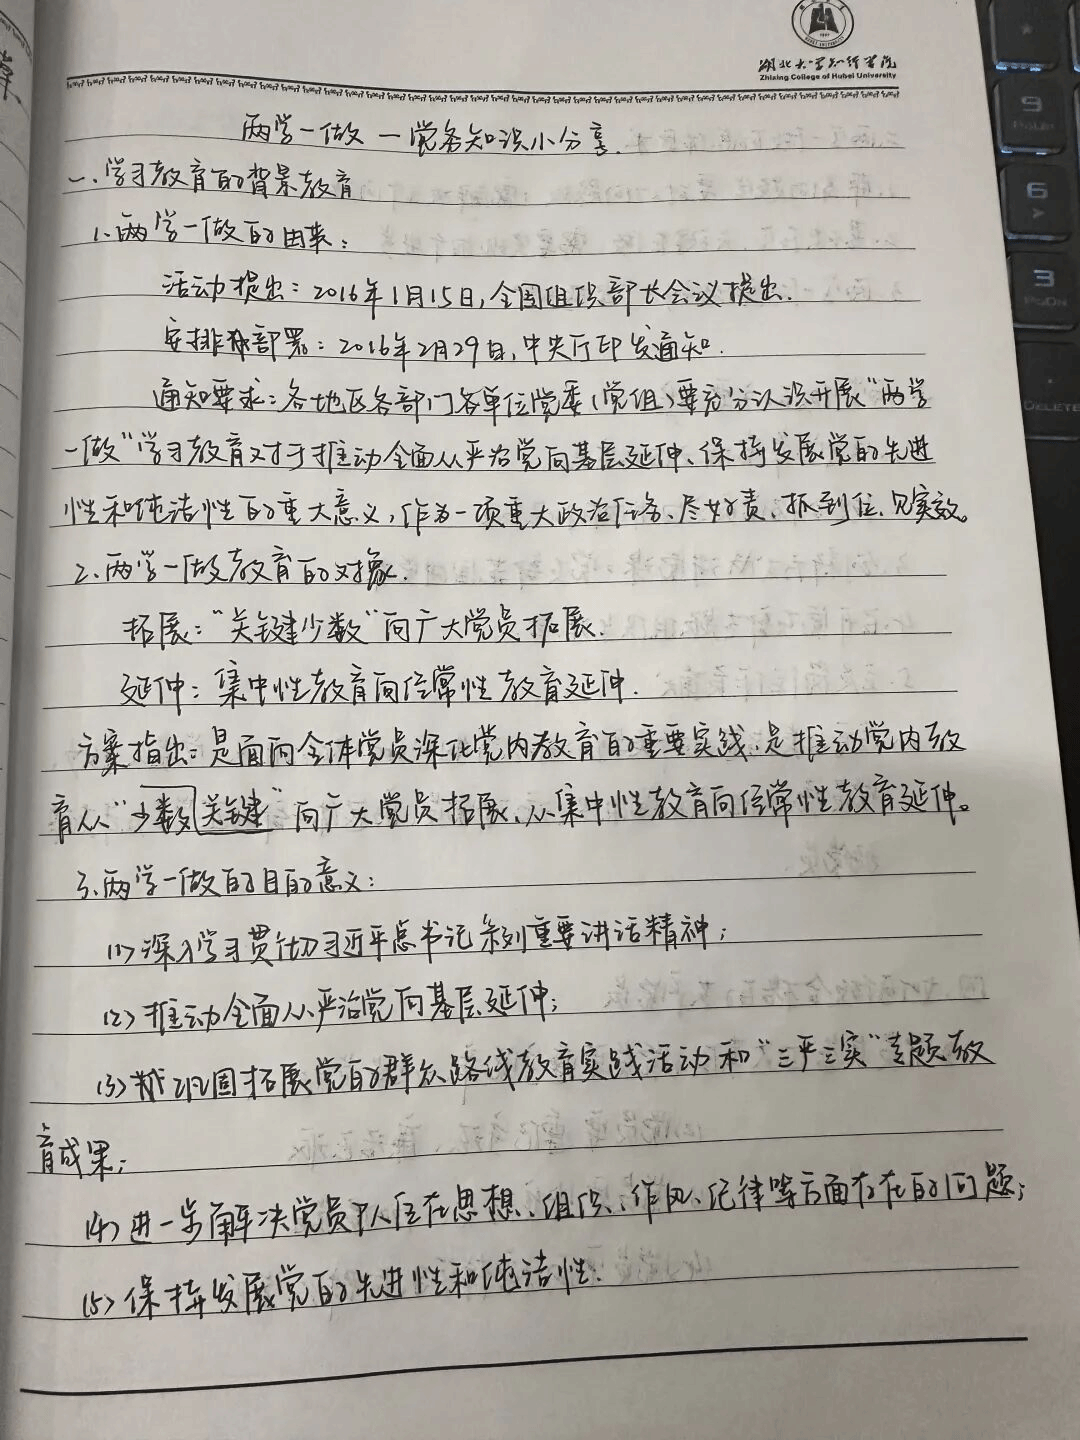 湖北大学知行学院
Zhixing College of Hubei University
两学一做一党务知识小分享.
一、学习教育的背景教育
1、两学一做的由来:
活动提出: 2016年1月15日,全国组织部长会议提出.
安排部署: 2016年2月29日,中央厅印发通知.
通知要求: 各地区各部门各单位党委(党组)要充分认识开展“两学
一做”学习教育对于推动全面从严治党向基层延伸、保持发展党的先进
性和纯洁性的重大意义,作为一项重大政治任务、尽好责、抓到位、见实效。
2、两学一做教育的对象.
拓展:“关键少数”向广大党员拓展.
延伸: 集中性教育向经常性教育延伸.
方案指出: 是面向全体党员深化党内教育的重要实践、是推动党内教
育从“少数关键”向广大党员拓展、从集中性教育向经常性教育延伸。
3、两学一做的目的意义:
(1)深入学习贯彻习近平总书记系列重要讲话精神;
(2)推动全面从严治党向基层延伸;
(3)巩固拓展党的群众路线教育实践活动和“三严三实”专题教
育成果;
(4)进一步解决党员队伍在思想、组织、作风、纪律等方面存在的问题;
(5)保持发展党的先进性和纯洁性.
9
PgUp
6
3
PgDn
DELETE